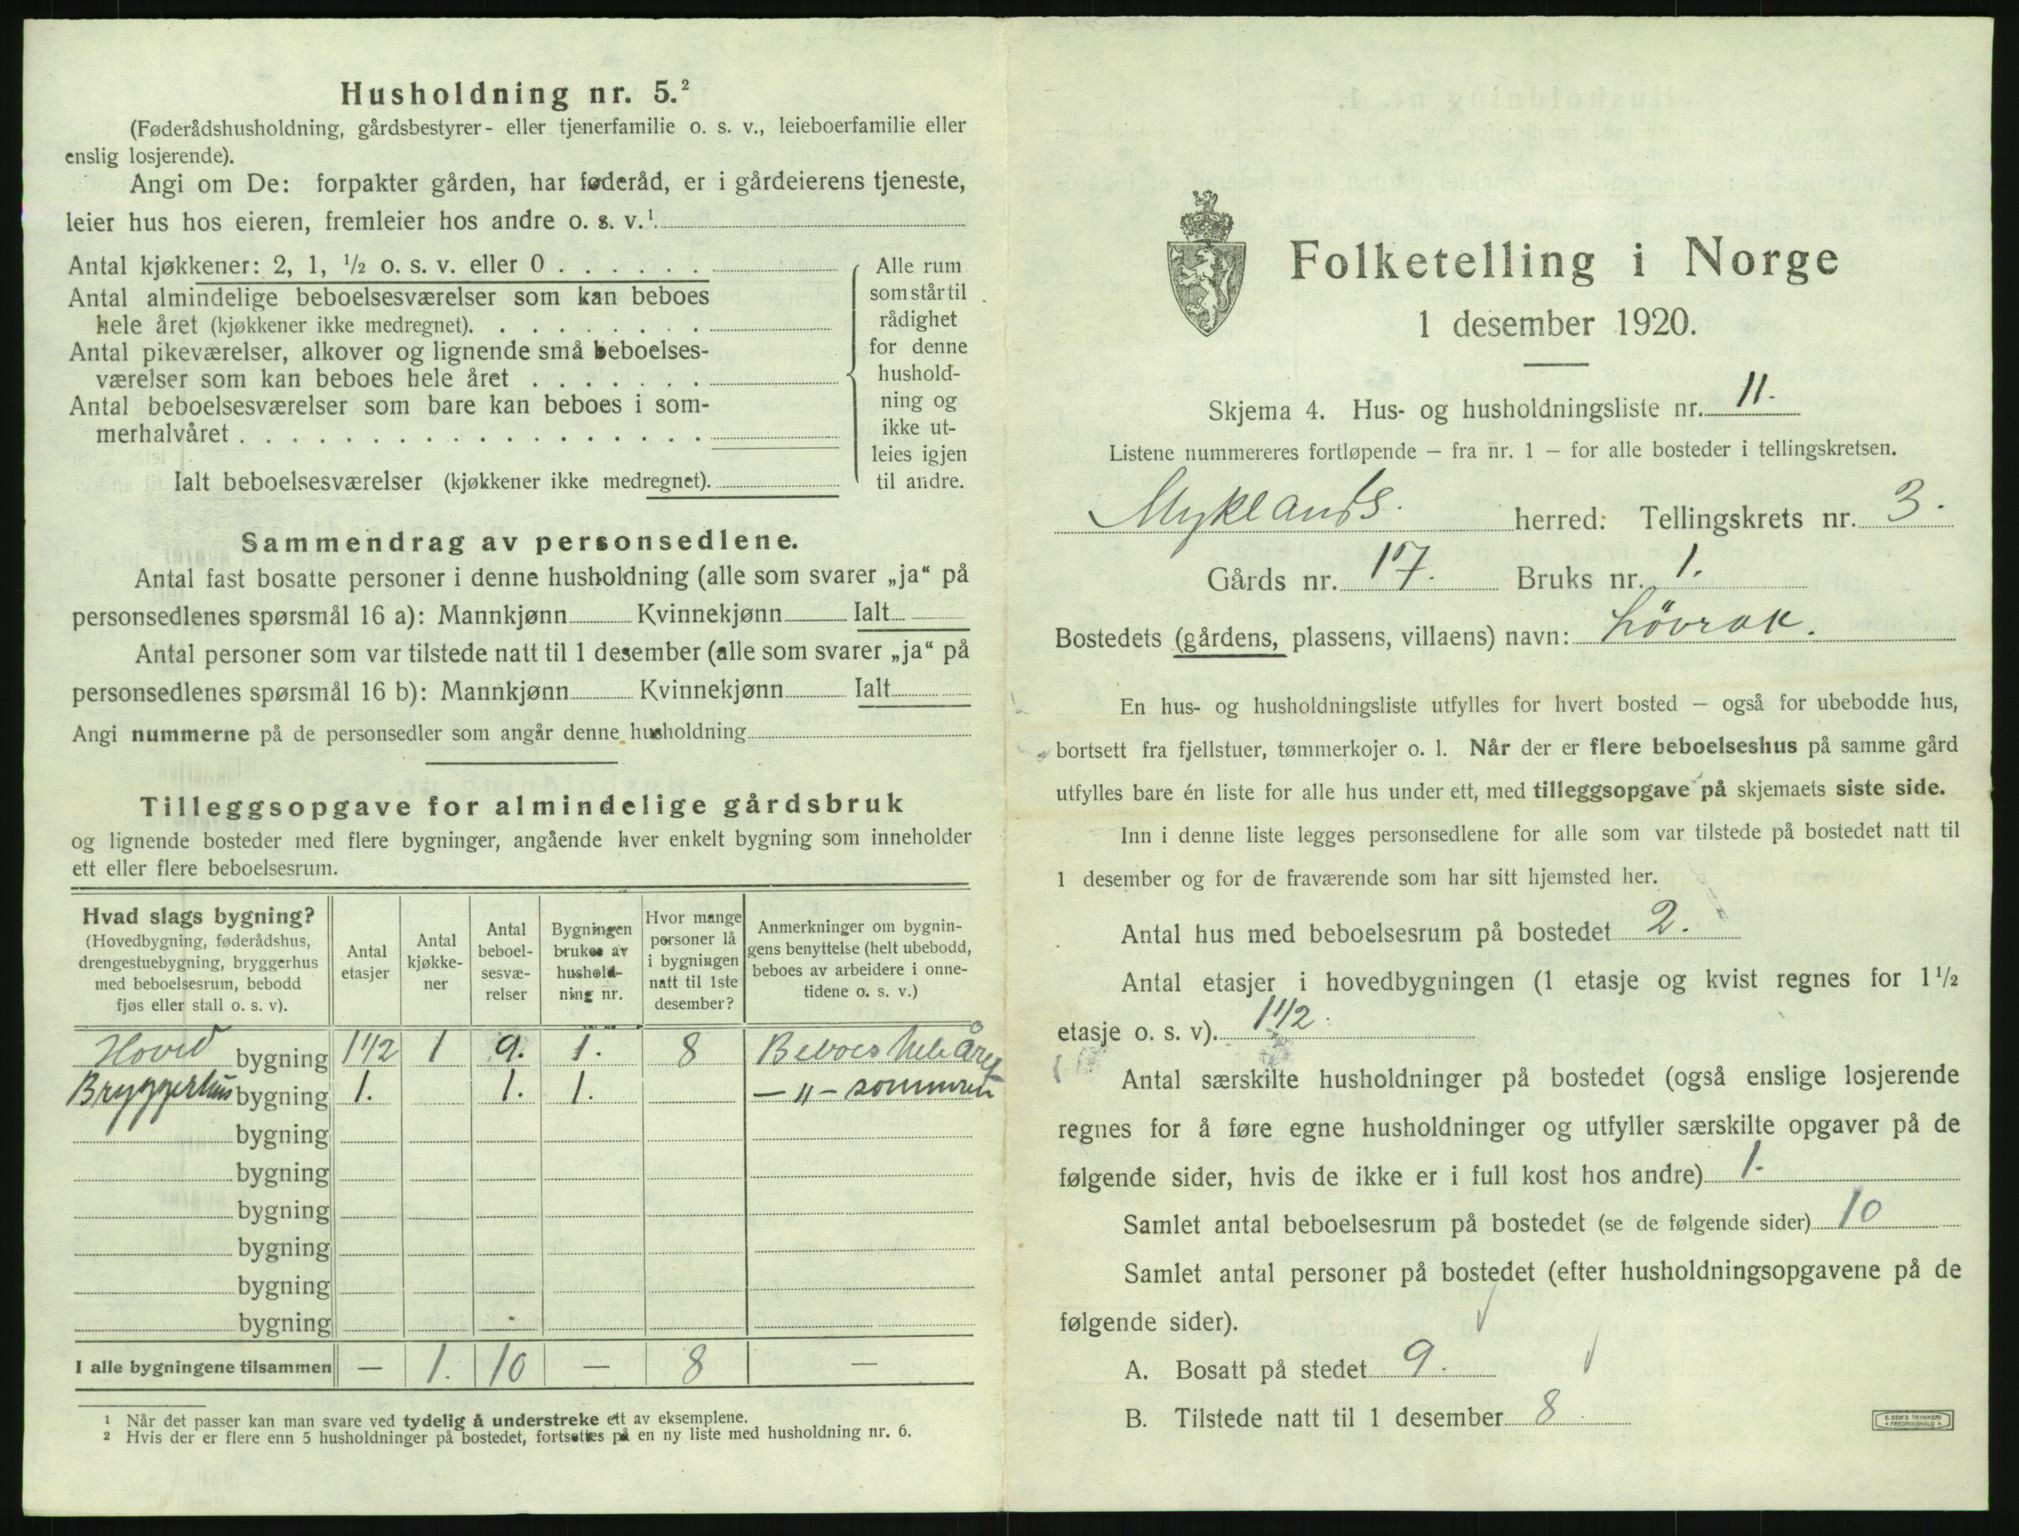 Husholdning nr. 5.²
(Føderådshusholdning, gårdsbestyrer- eller tjenerfamilie o. s. v., leieboerfamilie eller
enslig losjerende).
Angi om De: forpakter gården, har føderåd, er i gårdeierens tjeneste,
leier hus hos eieren, fremleier hos andre o. s. v.¹
Antal kjøkkener: 2, 1, ½ o. s. v. eller 0 . . . . . .
Antal almindelige beboelsesværelser som kan beboes
hele året (kjøkkener ikke medregnet). . . . . . . . .
Antal pikeværelser, alkover og lignende små beboelses-
værelser som kan beboes hele året . . . . . . .
Antal beboelsesværelser som bare kan beboes i som-
merhalvåret . . . . . . . . . . . . . . . . . .
Ialt beboelsesværelser (kjøkkener ikke medregnet).
Alle rum
som står til
rådighet
for denne
hushold-
ning og
ikke ut-
leies igjen
til andre.
Sammendrag av personsedlene.
Antal fast bosatte personer i denne husholdning (alle som svarer „ja“ på
personsedlenes spørsmål 16 a): Mannkjønn Kvinnekjønn Ialt
Antal personer som var tilstede natt til 1 desember (alle som svarer „ja“ på
personsedlenes spørsmål 16 b): Mannkjønn Kvinnekjønn Ialt
Angi nummerne på de personsedler som angår denne husholdning
Tilleggsopgave for almindelige gårdsbruk
og lignende bosteder med flere bygninger, angående hver enkelt bygning som inneholder
ett eller flere beboelsesrum.
Hvad slags bygning?
(Hovedbygning, føderådshus,
drengestuebygning, bryggerhus
med beboelsesrum, bebodd
fjøs eller stall o. s. v).
Antal
etasjer
Antal
kjøkke-
ner
Antal
beboel-
sesvæ-
relser
Bygningen
brukes av
hushold-
ning nr.
Hvor mange
personer lå
i bygningen
natt til 1ste
desember?
Anmerkninger om bygnin-
gens benyttelse (helt ubebodd,
beboes av arbeidere i onne-
tidene o. s. v.)
Hoved bygning 1 1/2 1 9. 1. 8 Beboes hele året
Bryggerhus bygning 1. 1. 1. — „ — sommeren
bygning
bygning
bygning
bygning
bygning
bygning
I alle bygningene tilsammen — 1. 10 — 8 —
1 Når det passer kan man svare ved tydelig å understreke ett av eksemplene.
2 Hvis der er flere enn 5 husholdninger på bostedet, fortsettes på en ny liste med husholdning nr. 6.
Folketelling i Norge
1 desember 1920.
Skjema 4. Hus- og husholdningsliste nr. 11.
Listene nummereres fortløpende – fra nr. 1 – for alle bosteder i tellingskretsen.
Myklands. herred: Tellingskrets nr. 3.
Gårds nr. 17. Bruks nr. 1.
Bostedets (gårdens, plassens, villaens) navn: Lövrak.
En hus- og husholdningsliste utfylles for hvert bosted – også for ubebodde hus,
bortsett fra fjellstuer, tømmerkojer o. l. Når der er flere beboelseshus på samme gård
utfylles bare én liste for alle hus under ett, med tilleggsopgave på skjemaets siste side.
Inn i denne liste legges personsedlene for alle som var tilstede på bostedet natt til
1 desember og for de fraværende som har sitt hjemsted her.
Antal hus med beboelsesrum på bostedet 2.
Antal etasjer i hovedbygningen (1 etasje og kvist regnes for 1 ½
etasje o. s. v). 1 1/2.
Antal særskilte husholdninger på bostedet (også enslige losjerende
regnes for å føre egne husholdninger og utfyller særskilte opgaver på de
følgende sider, hvis de ikke er i full kost hos andre) 1.
Samlet antal beboelsesrum på bostedet (se de følgende sider) 10
Samlet antal personer på bostedet (efter husholdningsopgavene på de
følgende sider).
A. Bosatt på stedet 9.
B. Tilstede natt til 1 desember 8.
E. SEM'S TRYKKERI
* FREDRIKSHALD *